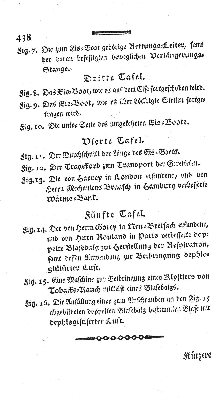 438
Fig. 7. Die zum Eis-Boot gehörige Rettungs-Leiter, samt
der daran befestigten beweglichen Verlängerungs-
Stange.
Dritte Tafel.
Fig. 8. Das Eis-Boot, wie es auf dem Eise fortgeschoben wird.
Fig. 9. Das Eis-Boot, wie es über
tragen wird.
Fig. 10. Die untere Seite des umgekehrten Eis-Boots.
Vierte Tafel.
Fig. 11. Der Durchschnitt der Länge des Eis-Boots.
Fig. 12. Der Tragekorb zum Transport der
Fig. 13. Die von Harvey in London erfundene, und von
Herrn Mechanicus Braasch in Hamburg verbesserte
Wärme-Bank.
Fünfte Tafel.
Fig. 14. Der von Herrn Gorcy in Neu-Breisach erfundene,
und von Herrn Rouland in Paris verbesserte dop-
pelte Blasebalg zur Herstellung der Respiration,
samt dessen Anwendung zur Beibringung dephlo-
gistisirter Luft.
Fig. 15. Eine Maschine zur Beibringung eines Klystiers von
Tabacks-Rauch mittelst eines Blasebalgs.
Fig. 16. Die Ausfüllung einer zum
doppelten Blasebalg Blase mit
dephlogistisirter Luft.
Kürzere